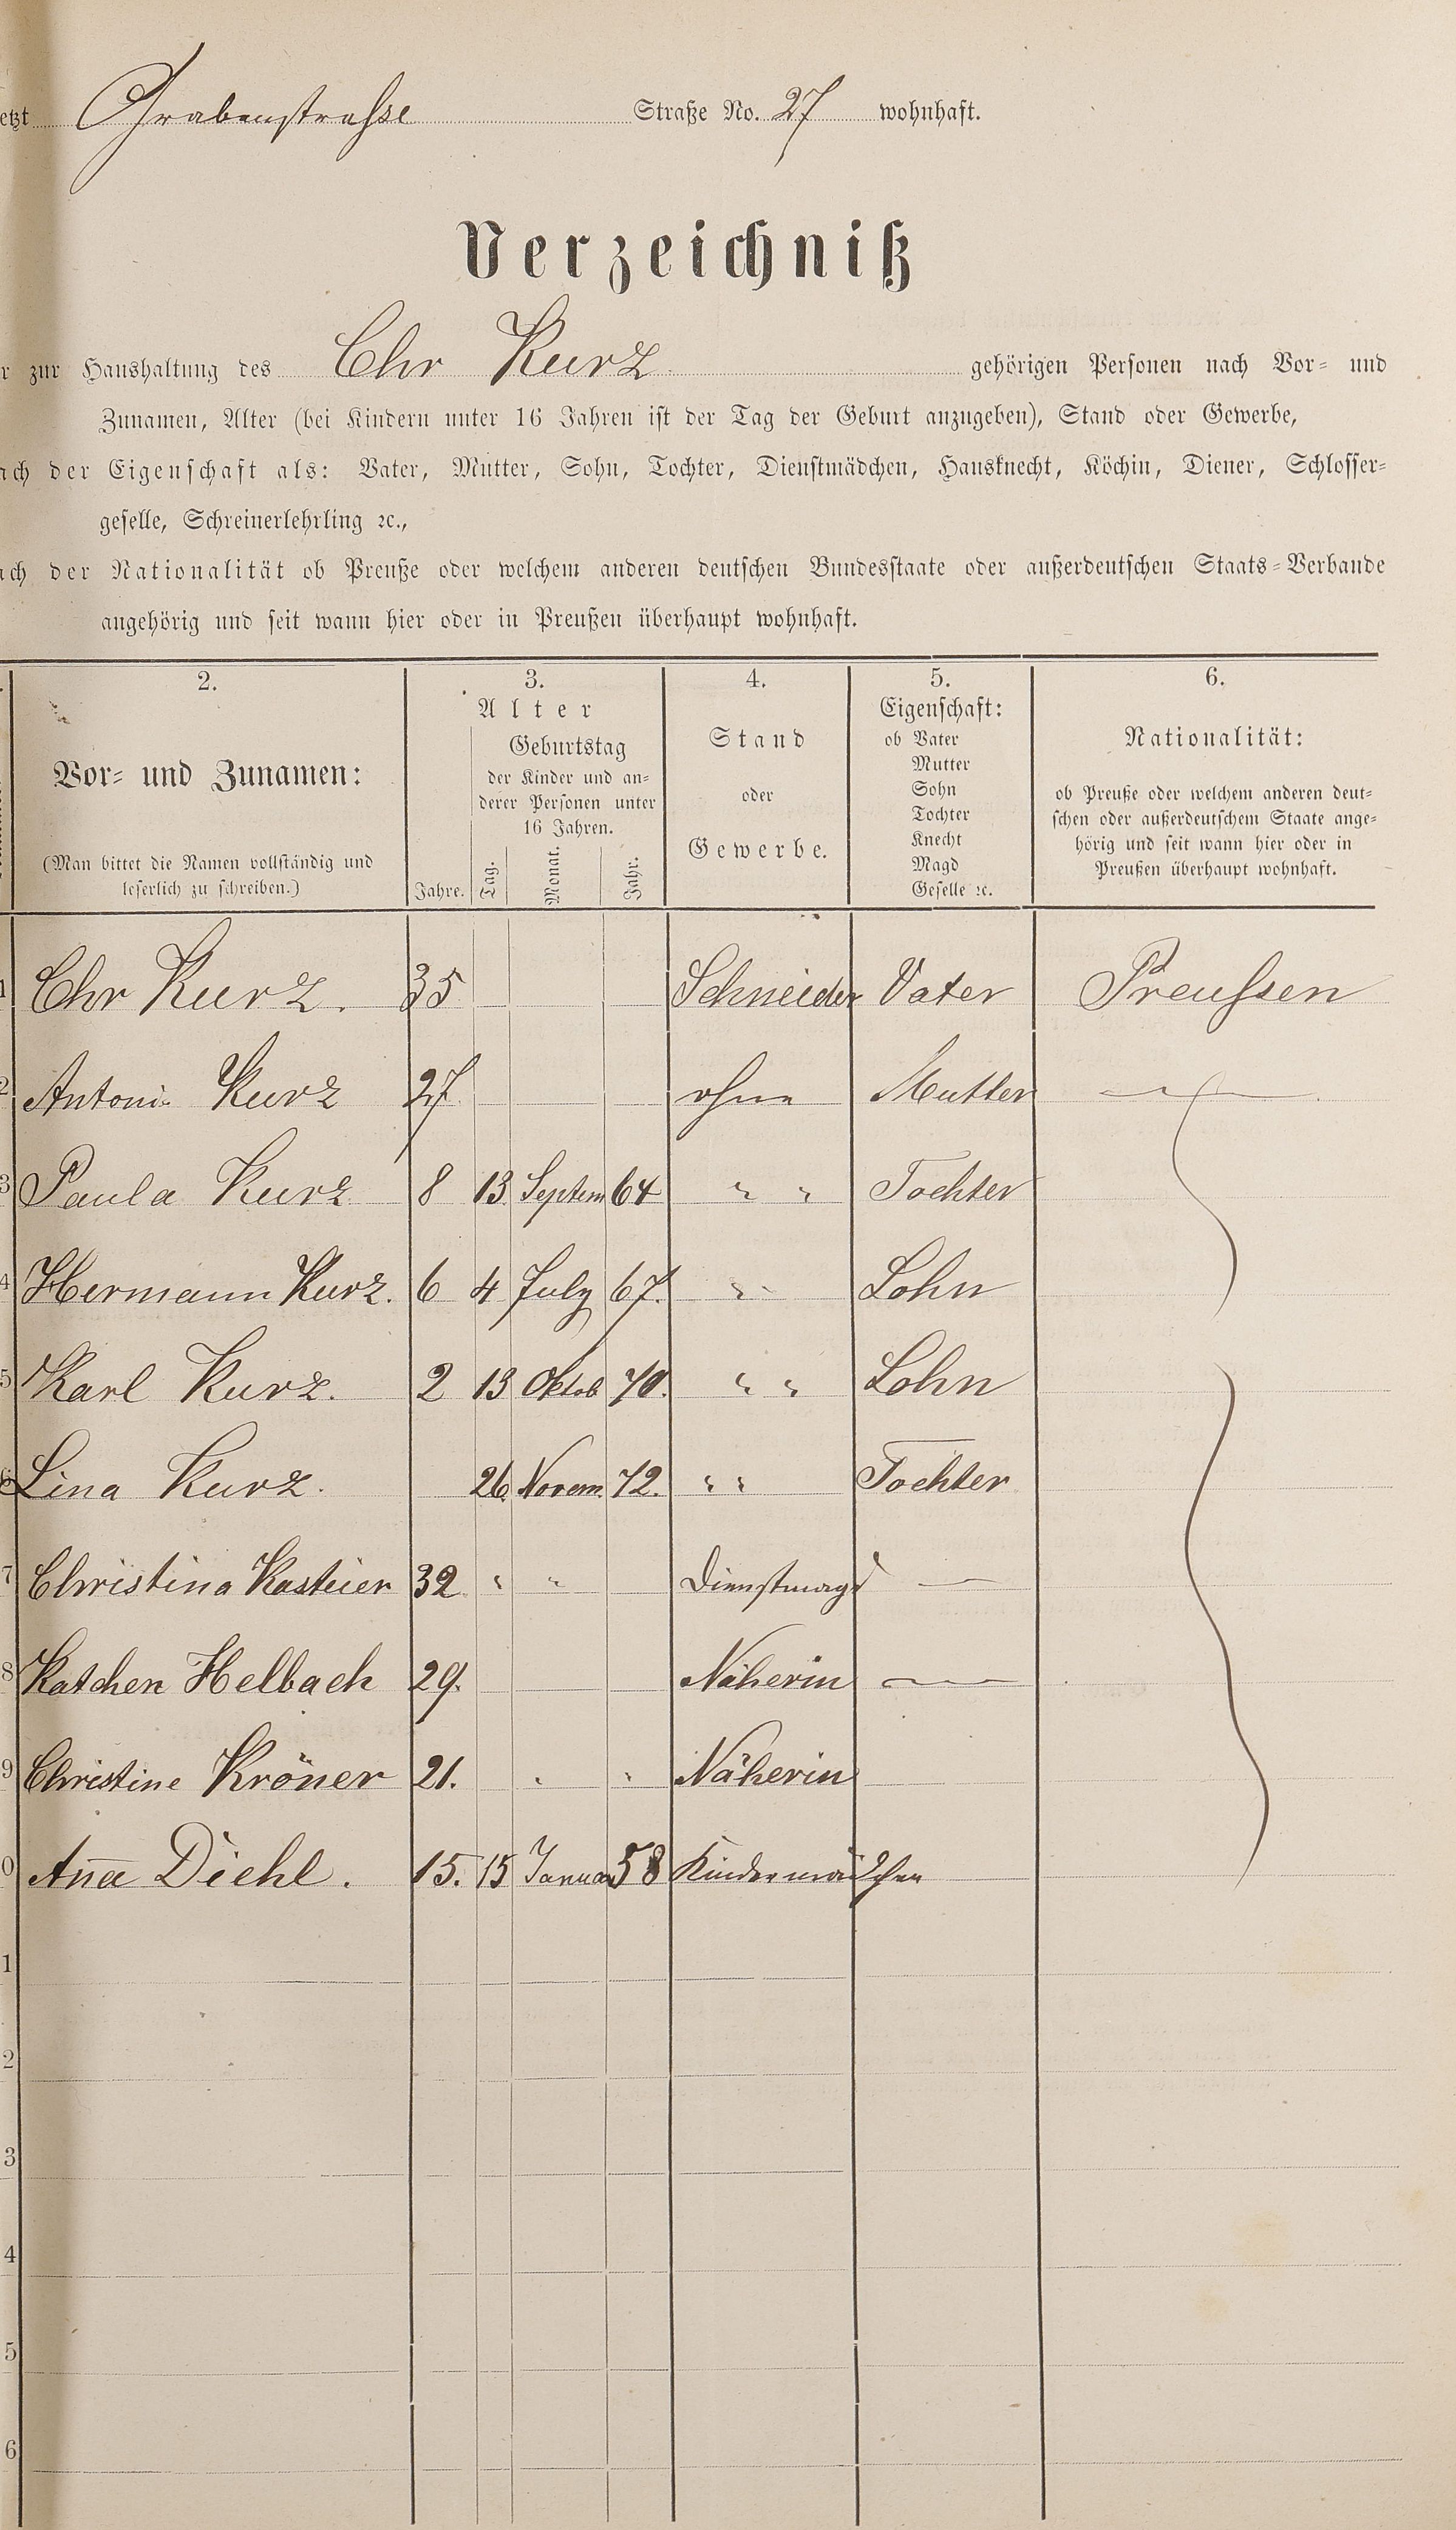 etzt Grabenstraße Straße No. 27 wohnhaft.
Verzeichniß
r zur Haushaltung des Chr Kurz gehörigen Personen nach Vor- und
Zunamen, Alter (bei Kindern unter 16 Jahren ist der Tag der Geburt anzugeben), Stand oder Gewerbe,
ach der Eigenschaft als: Vater, Mutter, Sohn, Tochter, Dienstmädchen, Hausknecht, Köchin, Diener, Schlosser-
geselle, Schreinerlehrling ꝛc.,
ach der Nationalität ob Preuße oder welchem anderen deutschen Bundesstaate oder außerdeutschen Staats-Verbande
angehörig und seit wann hier oder in Preußen überhaupt wohnhaft.
2. 3. 4. 5. 6.
Vor- und Zunamen:
(Man bittet die Namen vollständig und
leserlich zu schreiben.)
Alter
Jahre.
Geburtstag
der Kinder und an-
derer Personen unter
16 Jahren.
Tag. Monat. Jahr.
Stand
oder
Gewerbe.
Eigenschaft:
ob Vater
Mutter
Sohn
Tochter
Knecht
Magd
Geselle ꝛc.
Nationalität:
ob Preuße oder welchem anderen deut-
schen oder außerdeutschem Staate ange-
hörig und seit wann hier oder in
Preußen überhaupt wohnhaft.
1 Chr Kurz. 35 Schneider Vater Preußen
2 Antoni Kurz 27 ohne Mutter —
3 Paula Kurz 8 13 Septem 64 " " Tochter
4 Hermann Kurz. 6 4 July 67. " Sohn
5 Karl Kurz. 2 13 Oktob 70. " " Sohn
6 Lina Kurz. 26. Novem. 72. " " Tochter
7 Christina Kasteier 32 " " Dienstmagd —
8 Katchen Helbach 29. Näherin —
9 Christine Kröner 21. " " Näherin
0 Anna Diehl. 15. 15 Januar 58 Kindermädchen
1
2
3
4
5
6